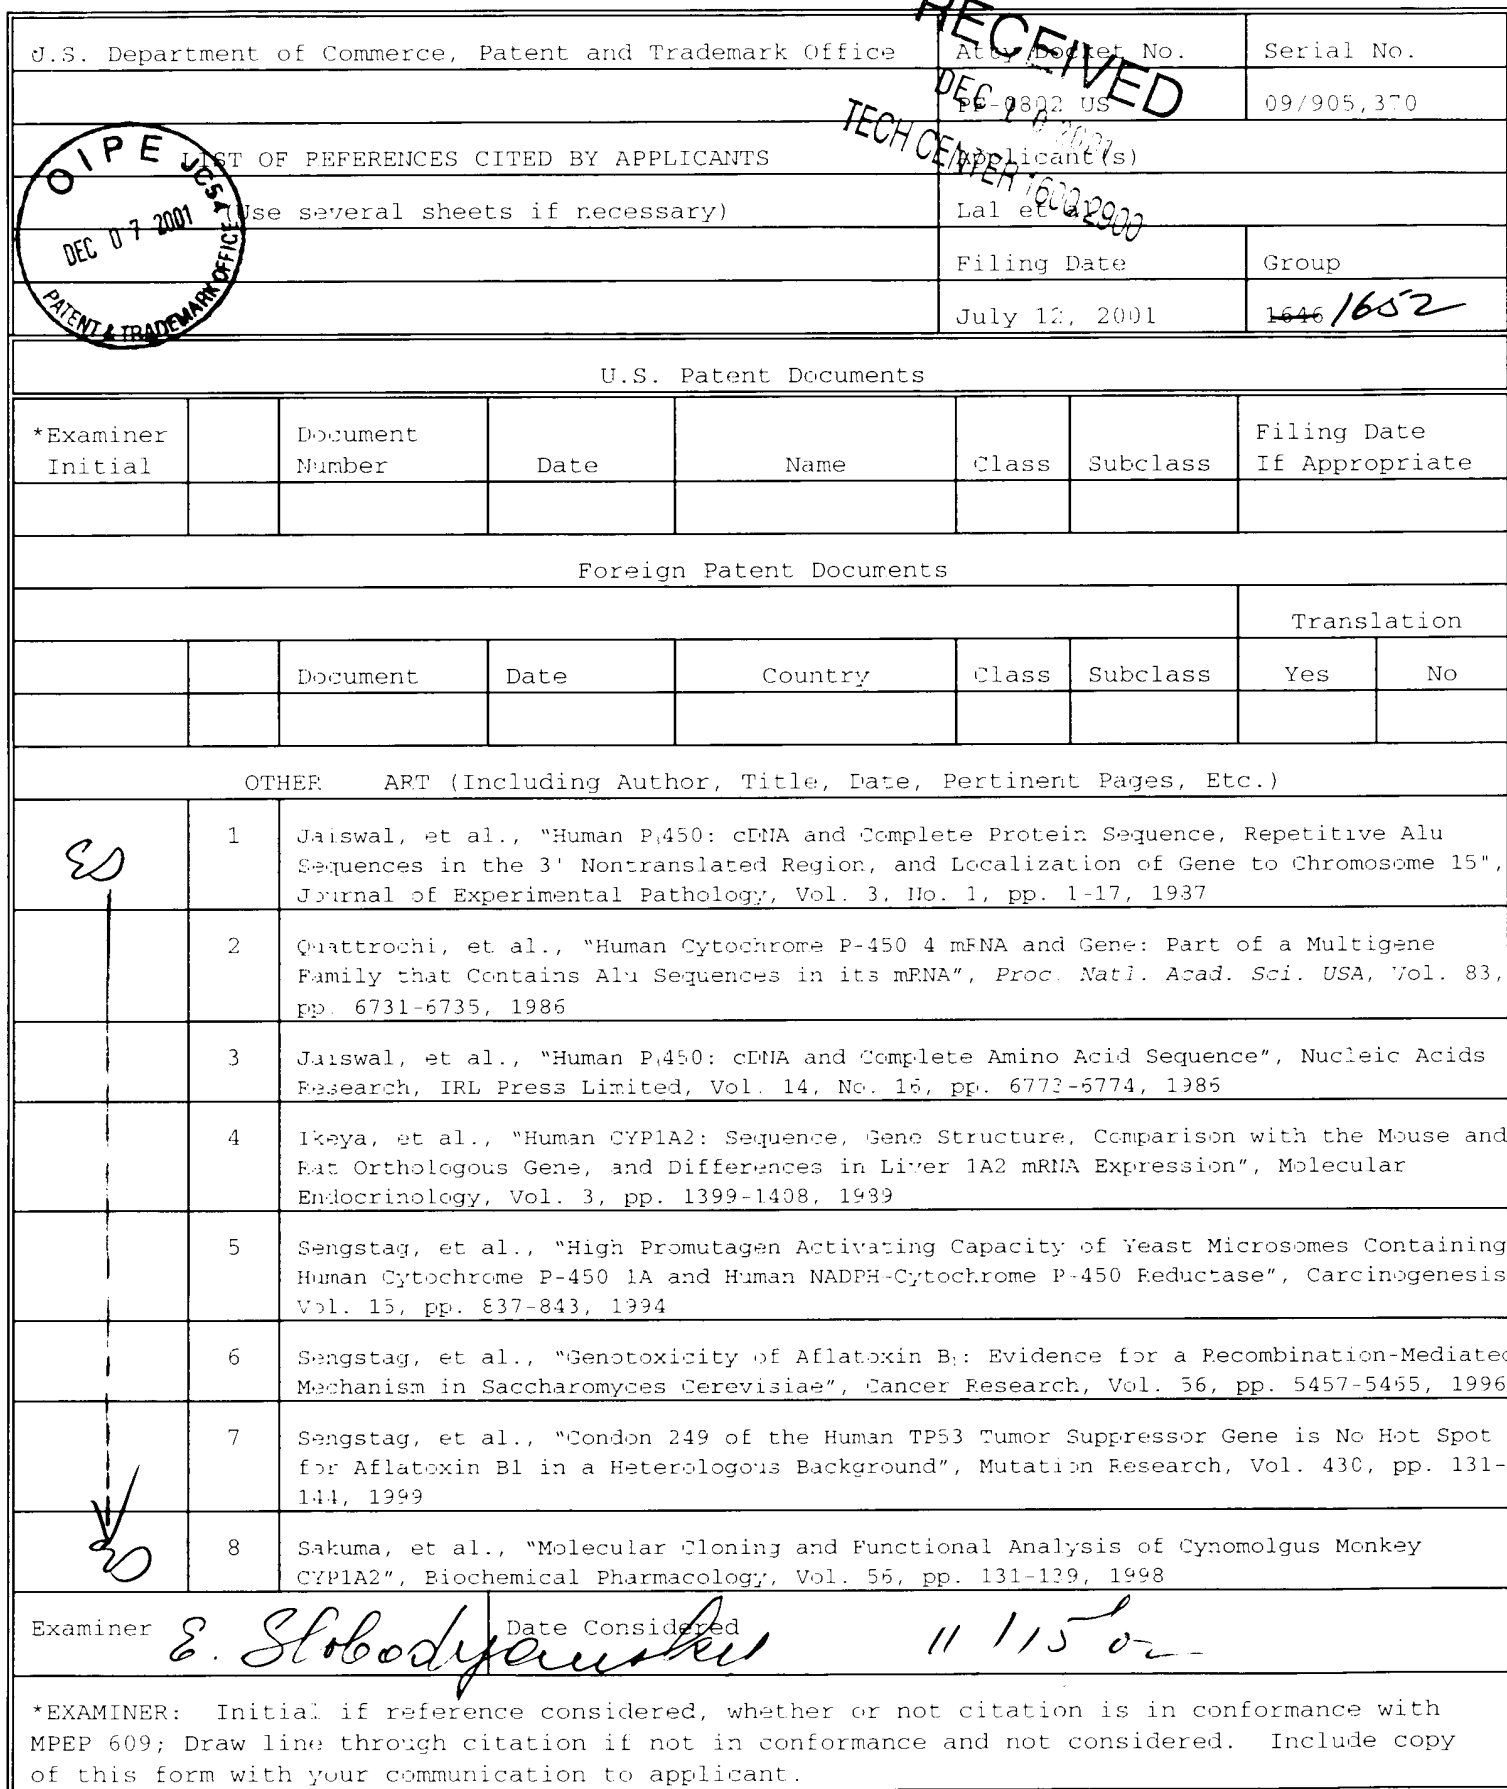 RECEIVED
DEC 1 0 2001
TECH CENTER 1600/2900
U.S. Department of Commerce, Patent and Trademark Office
Atty Docket No.
Serial No.
PF-0802 US
09/905,370
OIPE JC54
DEC 07 2001
PATENT & TRADEMARK OFFICE
LIST OF REFERENCES CITED BY APPLICANTS
Applicant(s)
(Use several sheets if necessary)
Lal et al.
Filing Date
Group
July 12, 2001
1646 1652
U.S. Patent Documents
*Examiner
Initial
Document
Number
Date
Name
Class
Subclass
Filing Date
If Appropriate
Foreign Patent Documents
Translation
Document
Date
Country
Class
Subclass
Yes
No
OTHER ART (Including Author, Title, Date, Pertinent Pages, Etc.)
ES
1
Jaiswal, et al., "Human P₁450: cDNA and Complete Protein Sequence, Repetitive Alu
Sequences in the 3' Nontranslated Region, and Localization of Gene to Chromosome 15",
Journal of Experimental Pathology, Vol. 3, No. 1, pp. 1-17, 1987
2
Quattrochi, et al., "Human Cytochrome P-450 4 mRNA and Gene: Part of a Multigene
Family that Contains Alu Sequences in its mRNA", Proc. Natl. Acad. Sci. USA, Vol. 83,
pp. 6731-6735, 1986
3
Jaiswal, et al., "Human P₁450: cDNA and Complete Amino Acid Sequence", Nucleic Acids
Research, IRL Press Limited, Vol. 14, No. 16, pp. 6773-6774, 1986
4
Ikeya, et al., "Human CYP1A2: Sequence, Gene Structure, Comparison with the Mouse and
Rat Orthologous Gene, and Differences in Liver 1A2 mRNA Expression", Molecular
Endocrinology, Vol. 3, pp. 1399-1408, 1989
5
Sengstag, et al., "High Promutagen Activating Capacity of Yeast Microsomes Containing
Human Cytochrome P-450 1A and Human NADPH-Cytochrome P-450 Reductase", Carcinogenesis
Vol. 15, pp. 837-843, 1994
6
Sengstag, et al., "Genotoxicity of Aflatoxin B₁: Evidence for a Recombination-Mediated
Mechanism in Saccharomyces Cerevisiae", Cancer Research, Vol. 56, pp. 5457-5465, 1996
7
Sengstag, et al., "Condon 249 of the Human TP53 Tumor Suppressor Gene is No Hot Spot
for Aflatoxin B1 in a Heterologous Background", Mutation Research, Vol. 430, pp. 131-
144, 1999
ES
8
Sakuma, et al., "Molecular Cloning and Functional Analysis of Cynomolgus Monkey
CYP1A2", Biochemical Pharmacology, Vol. 56, pp. 131-139, 1998
Examiner E. Slobodyansky
Date Considered 11/15/02
*EXAMINER: Initial if reference considered, whether or not citation is in conformance with
MPEP 609; Draw line through citation if not in conformance and not considered. Include copy
of this form with your communication to applicant.